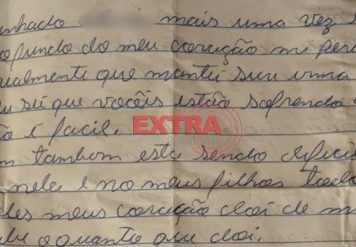 unhado mais uma vez
do meu coração me per
ualmente que mantú sua irma
su sei que vocêis estão sofrendo
ão é facil.
EXTRA
m tambem esta sendo dificil
nela e no meus filhos
les meus coração doi de m
o quanto que doi.